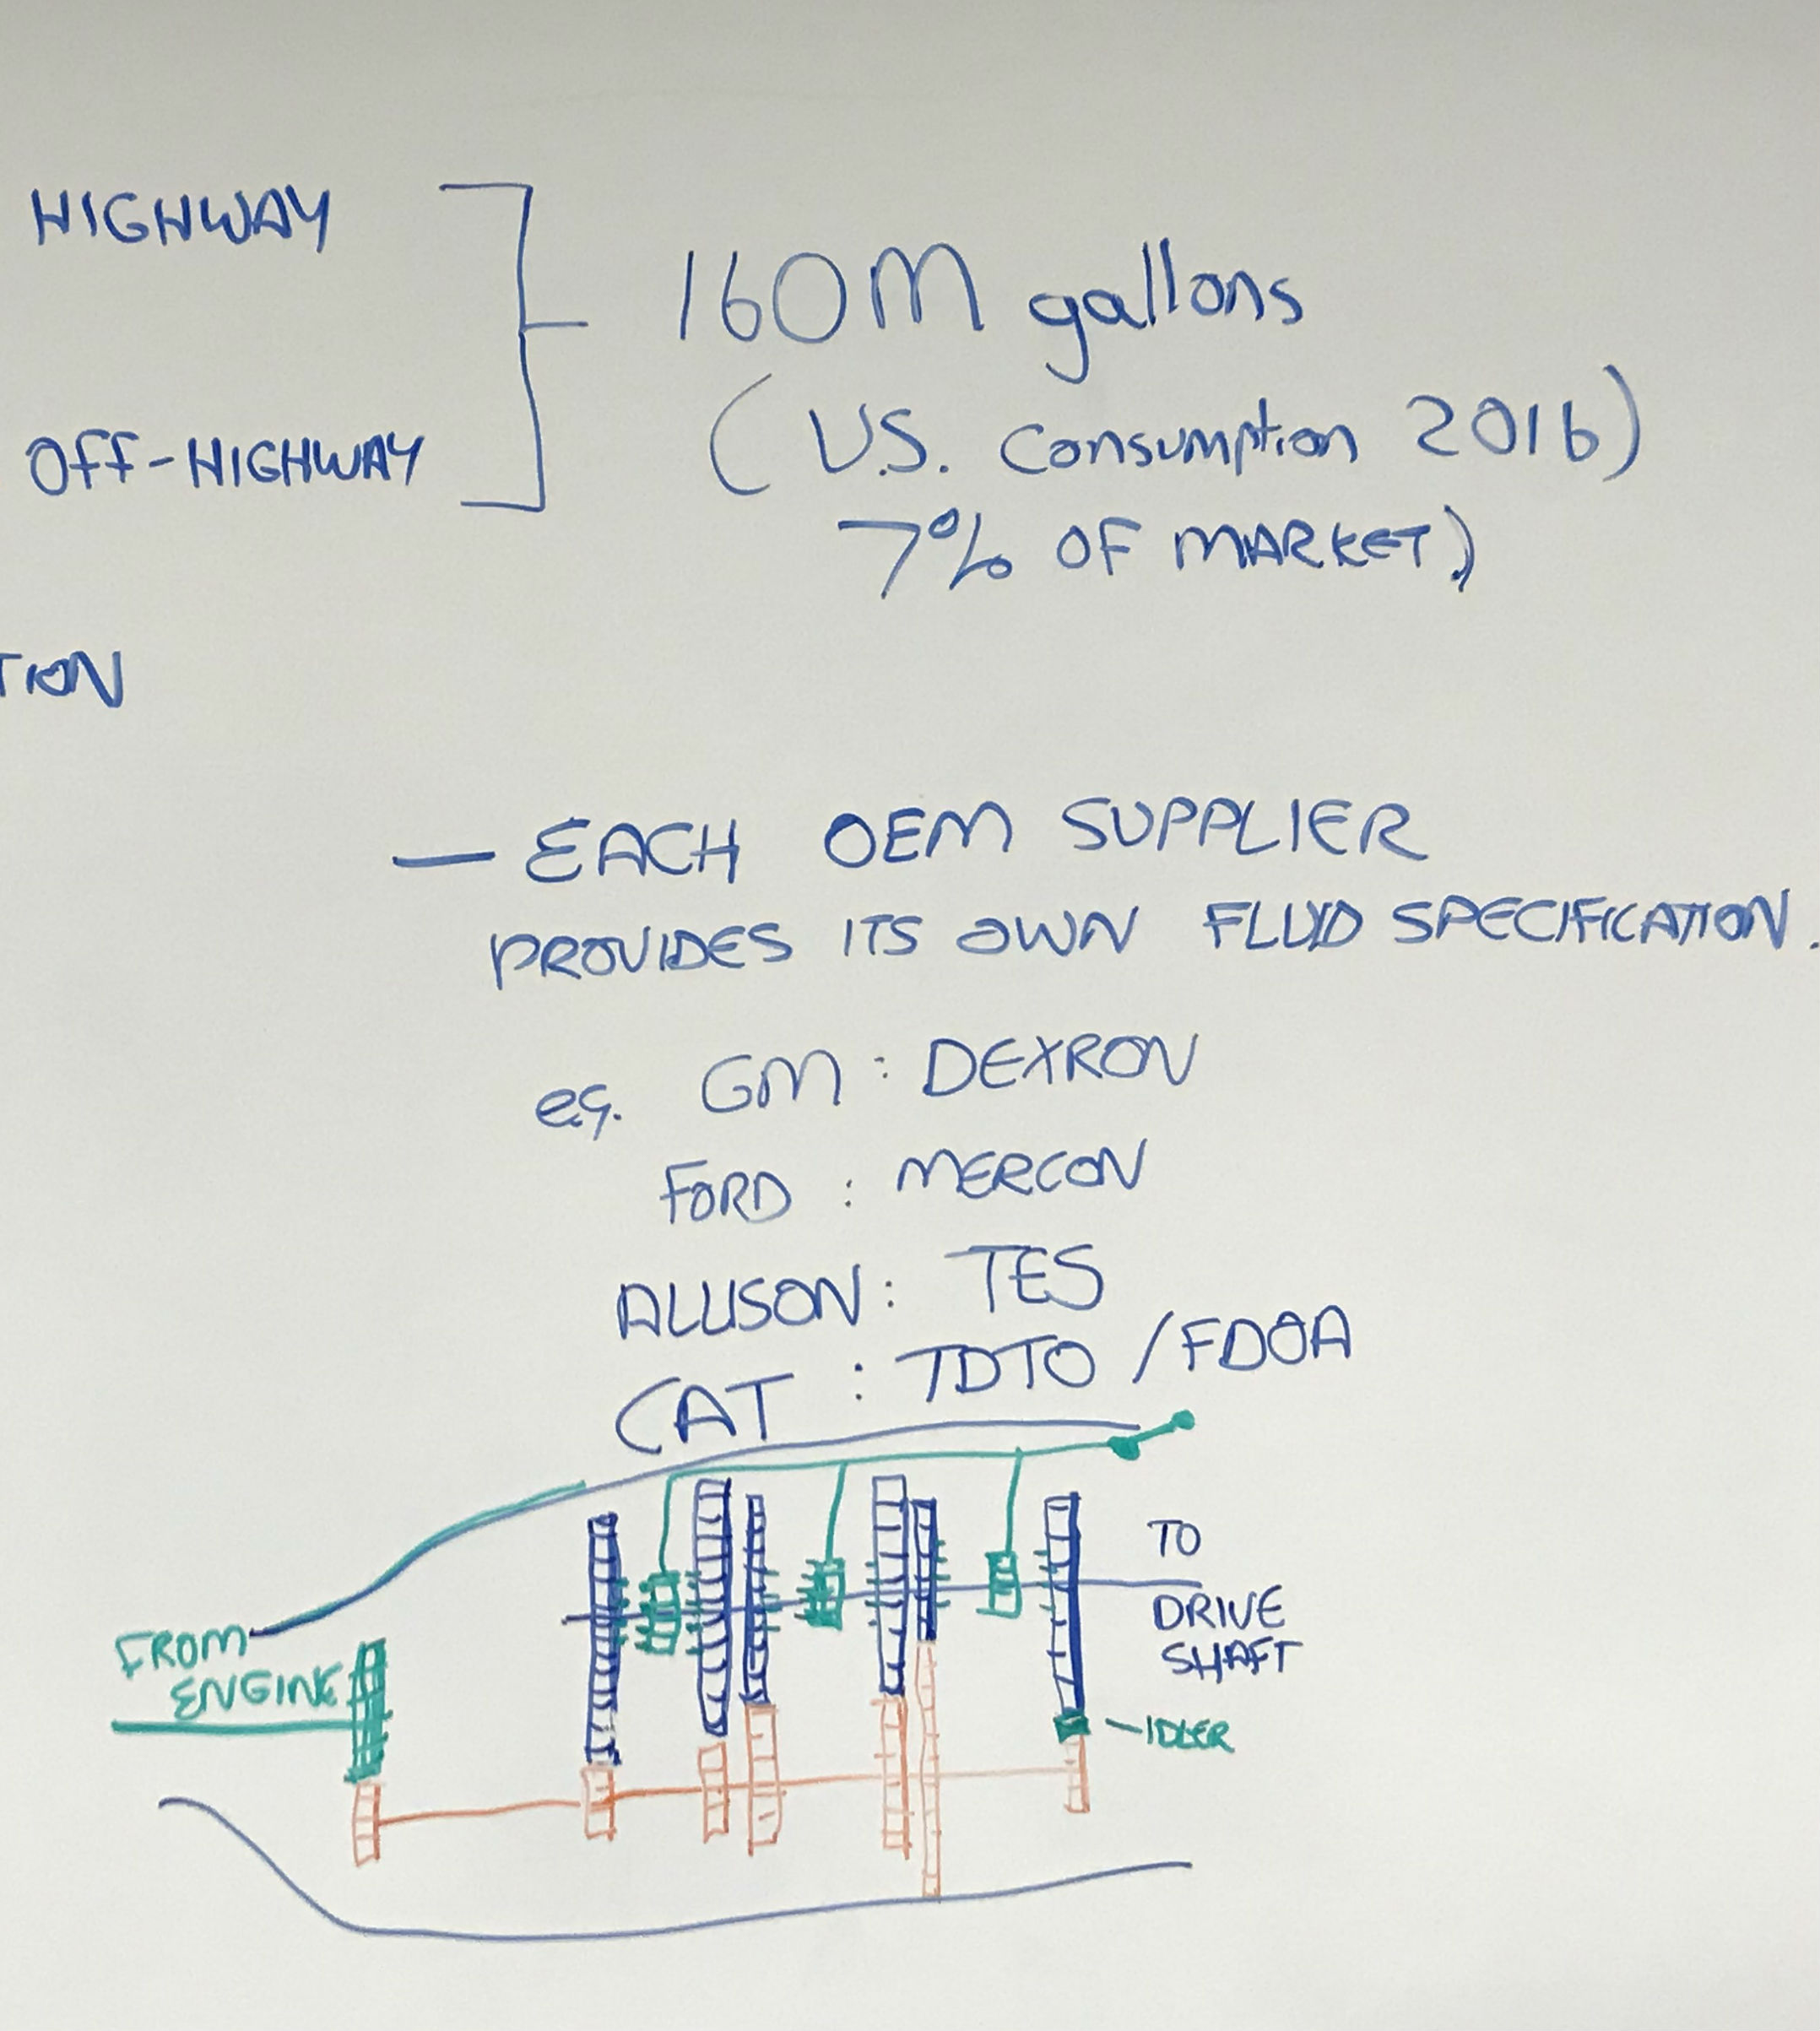 HIGHWAY
160M gallons
OFF-HIGHWAY
(U.S. Consumption 2016)
7% OF MARKET)
TION
— EACH OEM SUPPLIER
PROVIDES ITS OWN FLUID SPECIFICATION.
eg. GM : DEXRON
FORD : MERCON
ALLISON : TES
CAT : TDTO / FDOA
TO
DRIVE
SHAFT
FROM
ENGINE
—IDLER